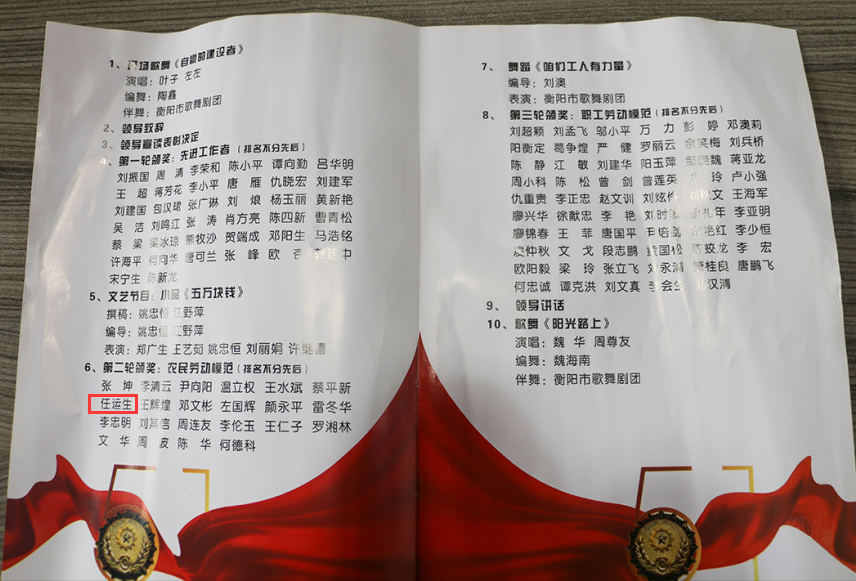 1、开场歌舞《自豪的建设者》
演唱：叶子 左左
编舞：陶鑫
伴舞：衡阳市歌舞剧团
2、领导致辞
3、领导宣读表彰决定
4、第一轮颁奖：先进工作者（排名不分先后）
刘振国 周清 李荣和 陈小平 谭向勤 吕华明
王超 蒋芳花 李小平 唐雁 仇晓宏 刘建军
刘建国 包汉珺 张广琳 刘烺 杨玉丽 黄新艳
吴洁 刘鸣江 张涛 肖方亮 陈四新 曹青松
蔡梁 梁冰琼 熊牧沙 贺端成 邓阳生 马浩铭
许海平 何向华 唐可兰 张峰 欧杏 建中
宋宁生 陈新龙
5、文艺节目：小品《五万块钱》
撰稿：姚忠恒 江野萍
编导：姚忠恒 江野萍
表演：郑广生 王艺茹 姚忠恒 刘丽娟 许继喜
6、第二轮颁奖：农民劳动模范（排名不分先后）
张坤 李清云 尹向阳 温立权 王水斌 蔡平新
任运生 王辉煌 邓文彬 左国辉 颜永平 雷冬华
李忠明 刘其信 周连友 李伦玉 王仁子 罗湘林
文华 周波 陈华 何德科
7、舞蹈《咱们工人有力量》
编导：刘澳
表演：衡阳市歌舞剧团
8、第三轮颁奖：职工劳动模范（排名不分先后）
刘超颖 刘孟飞 邹小平 万力 彭婷 邓澳莉
阳衡定 葛争煌 严健 罗丽云 佘笑梅 刘兵桥
陈静 江敏 刘建华 阳玉萍 邹晓魏 蒋亚龙
周小科 陈松 曾剑 曾莲英 玲 卢小强
仇重贵 李正忠 赵文训 刘炫 刘秋文 王海军
廖兴华 徐献忠 李艳 刘时 年 李亚明
廖锦春 王菲 唐国平 尹培 艳红 李少恒
凌仲秋 文戈 段志鹏 黄国松 陈蛟龙 李宏
欧阳毅 梁玲 张立飞 刘永清 萧桂良 唐鹏飞
何忠诚 谭克洪 刘文真 李会 汉清
9、领导讲话
10、歌舞《阳光路上》
演唱：魏华 周尊友
编舞：魏海南
伴舞：衡阳市歌舞剧团